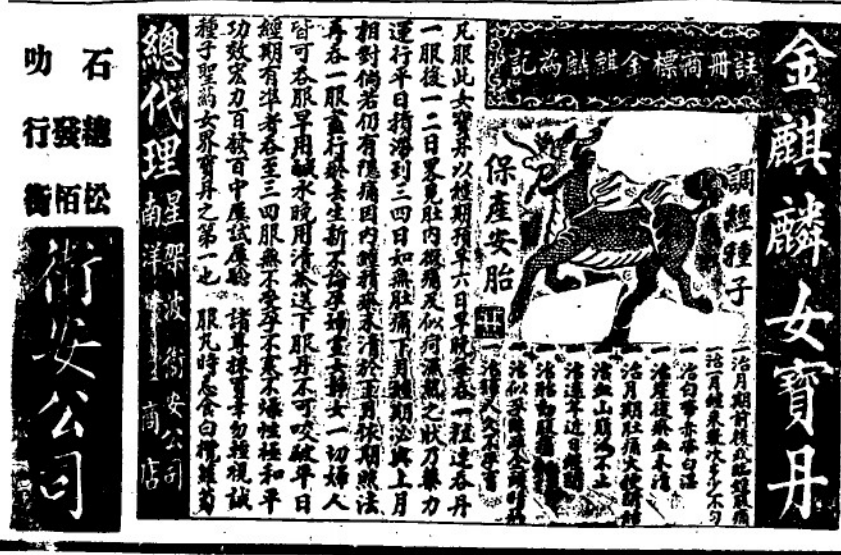 金麒麟女寶丹
註冊商標金麒麟為記
調經種子
保產安胎
一治月期前後或經後腹痛
一治月經來數次多少不勻
一治白帶赤帶白濁
一治產後瘀血未清
一治月期肚痛大便
一治血山崩漏不止
一治
一治胎動腹痛
一治
一治婦人久不孕育
凡服此女寶丹以經期預早六日早晚每吞一粒連吞丹
一服後一二日畧見肚內微痛及似疴濕熱之狀乃藥力
運行平日積滯到三四日如無肚痛下月經期必與上月
相對倘若仍有隱痛因內體積瘀未清於下月依期照法
再吞一服盡行瘀去生新不論孕婦室女歸女一切婦人
皆可吞服早用鹹水晚用清茶送下服丹不可咬破平日
經期有準者吞至三四服無不孕孕不寒不燥性極和平
功效宏力百發百中屢試屢驗 諸尊採買幸勿輕視誠
種子聖葯女界寶丹之第一也 服凡時忌食白蘿蔔
總代理
星架波衛安公司
南洋 商店
石總松
發栢
叻行街
衛安公司